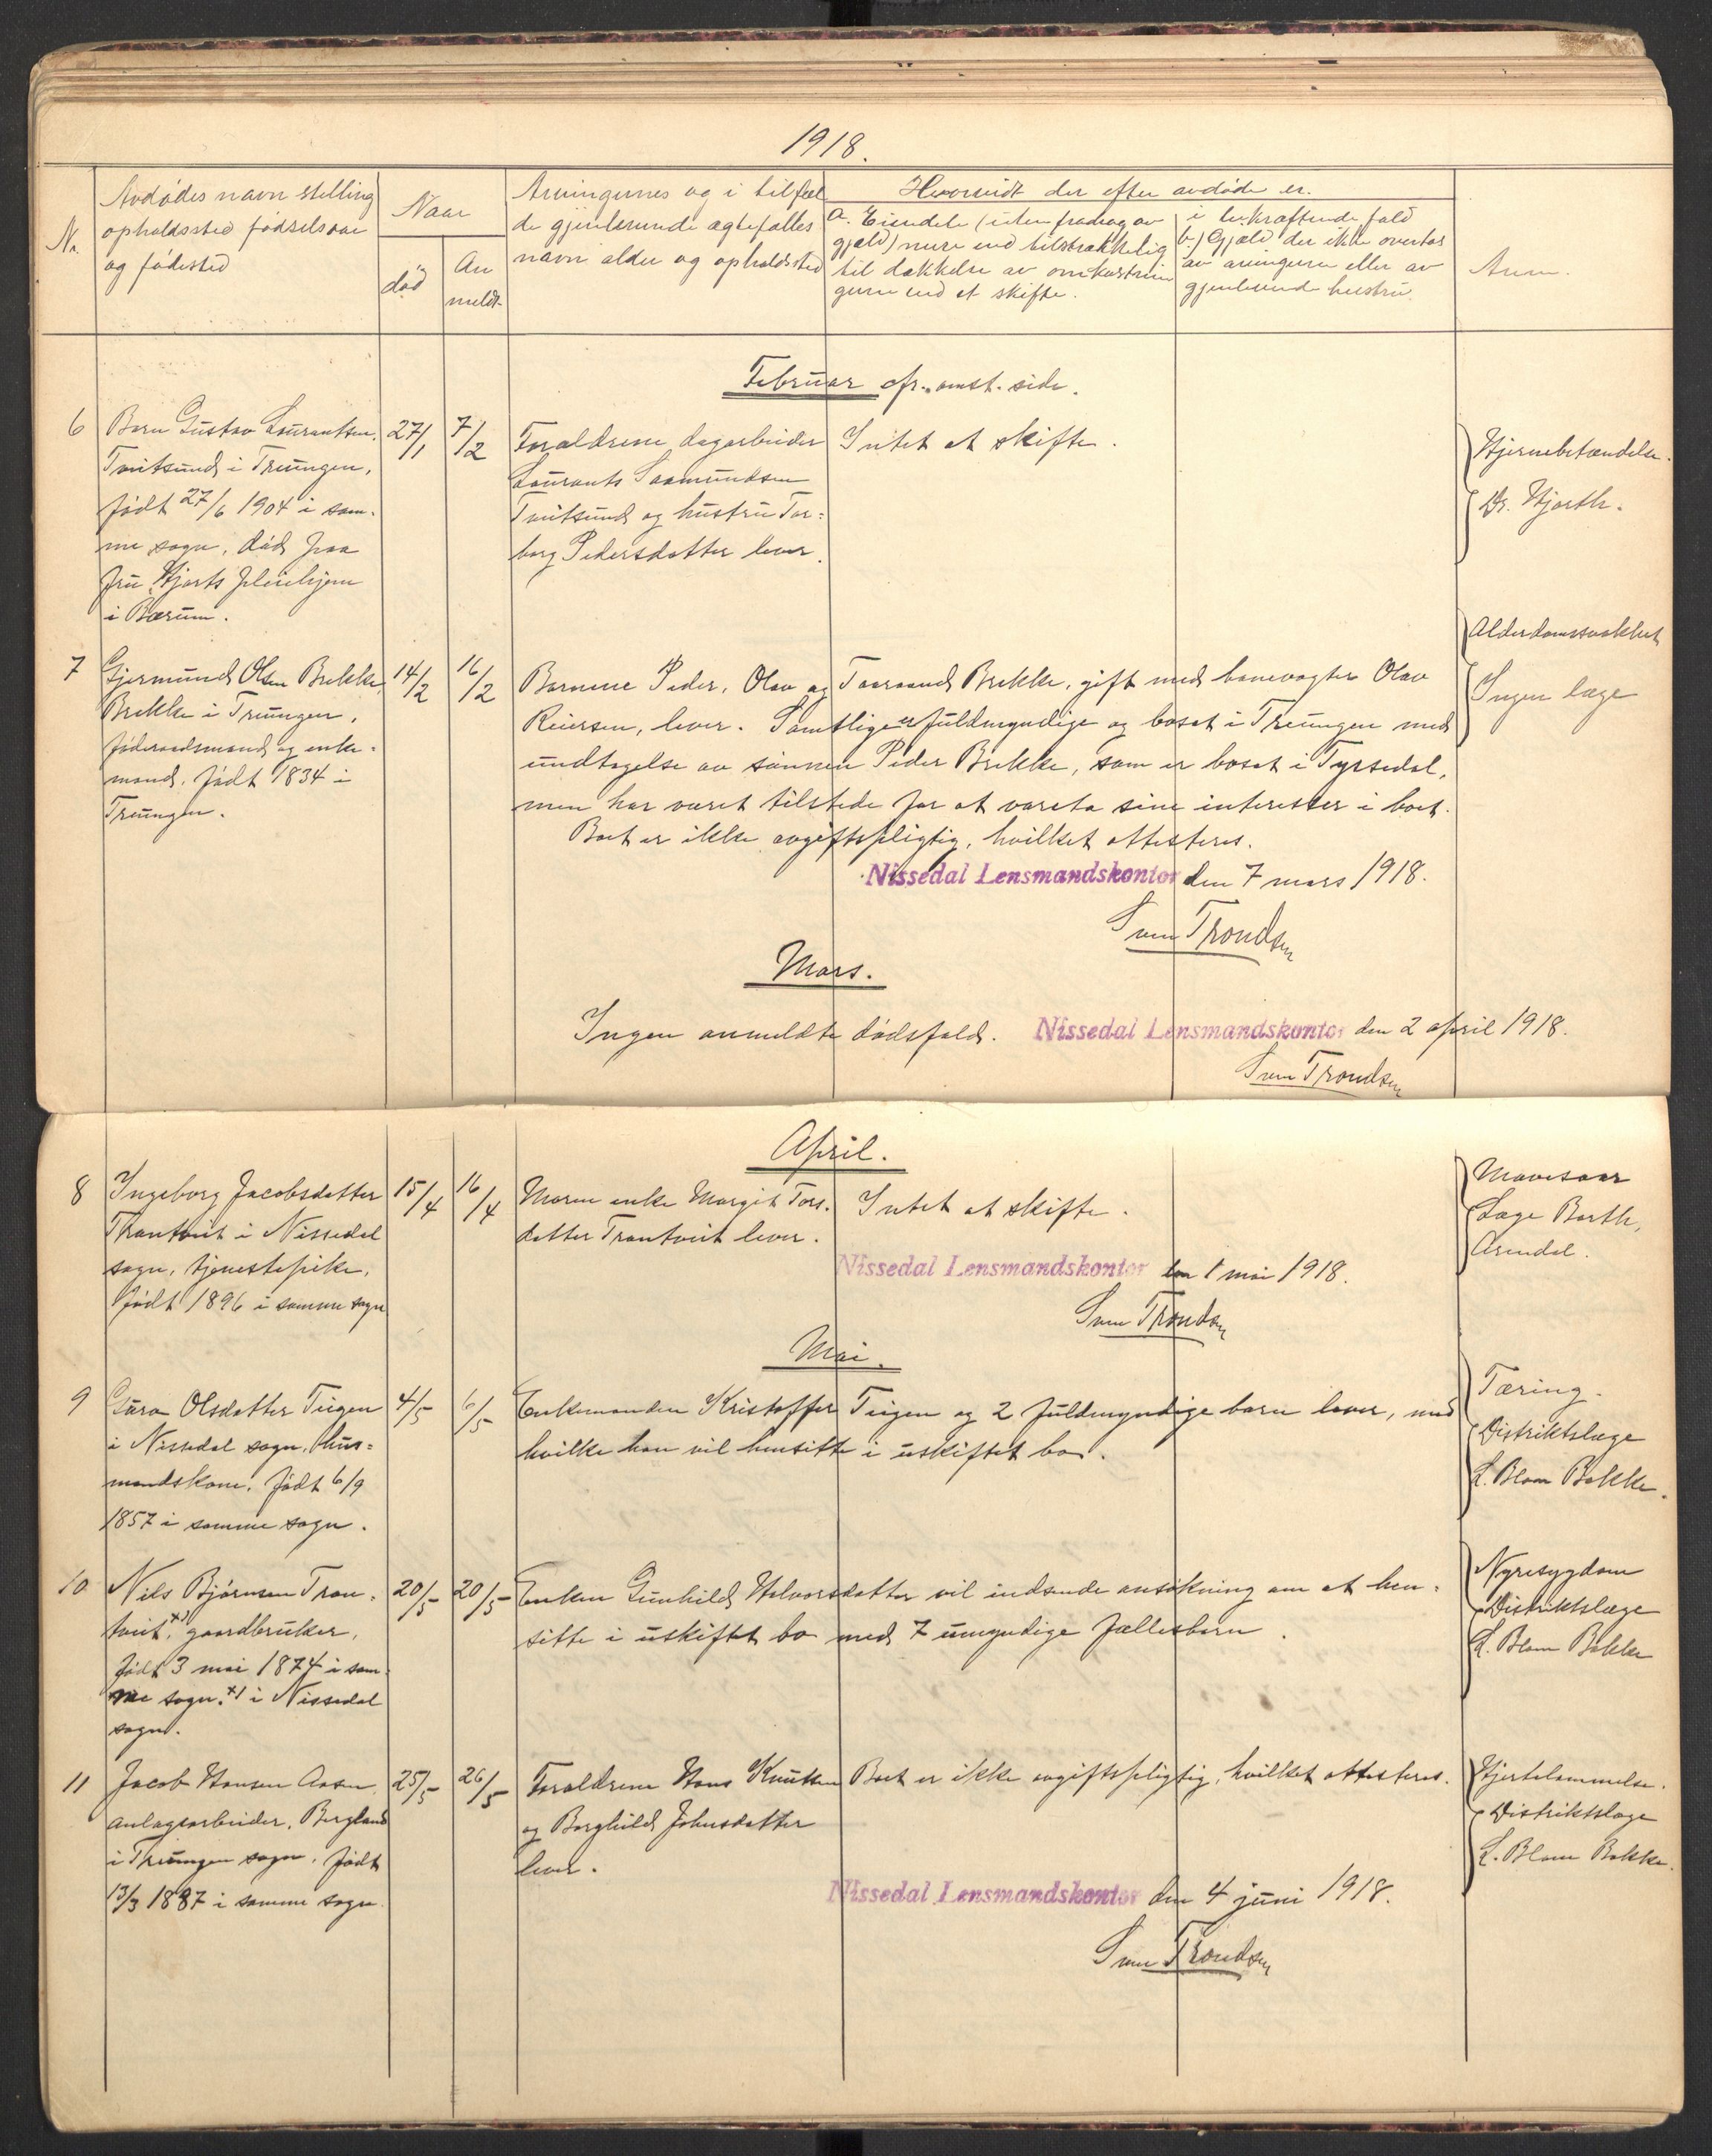 1918.
Nr.
Avdødes navn stilling
opholdssted fødselsaar
og fødested
Naar
død
An
meldt
Arvingernes og i tilfæl
de gjenlevende ægtefælles
navn alder og opholdssted
Hvorvidt der efter avdøde er.
a. Eiendele (uten fradrag av
gjæld) mere end tilstrækkelig
til dækkelse av omkostnin
gerne ved et skifte.
i bekræftende fald
b.) Gjæld der ikke overtas
av arvingerne eller av
gjenlevende hustru.
Anm.
Februar cfr. omst. side.
6
Barn Gustav Lourantsen
Tveitsund i Treungen,
født 27/6 1904 i sam-
me sogn, død paa
fru Hjorts pleiehjem
i Bærum.
27/1
7/2
Forældrene dagarbeider
Lourants Saamundsen
Tveitsund og hustru Tor=
borg Pedersdatter lever.
Intet at skifte.
Hjernebetændelse.
Dr. Hjorth.
7
Gjermund Olsen Brekke,
Brekke i Treungen,
føderaadsmand og enke-
mand, født 1834 i
Treungen.
14/2
16/2
Barnene Peder, Olav og Taaraand Brekke, gift med banevogter Olav
Reiersen, lever. Samtlige er fuldmyndige og bosat i Treungen med
undtagelse av sønnen Peder Brekke, som er bosat i Tyssedal,
men har været tilstede for at vareta sine interesser i boet.
Boet er ikke avgiftspligtig, hvilket attesteres.
Nissedal Lensmandskontor den 7 mars 1918.
Sven Trondsen
Alderdomssvakhet
Ingen læge
Mars.
Ingen anmeldte dødsfald. Nissedal Lensmandskontor den 2 april 1918.
Sven Trondsen
April.
8
Ingeborg Jacobsdatter
Trontveit i Nissedal
sogn, tjenestepike,
født 1896 i samme sogn
15/4
16/4
Moren enke Margit Tors-
datter Trontveit lever.
Intet at skifte.
Nissedal Lensmandskontor den 1 mai 1918.
Sven Trondsen
Mavesaar
Læge Barth,
Arendal.
Mai.
9
Guro Olsdatter Teigen
i Nissedal sogn, hus=
mandskone, født 6/9
1857 i samme sogn.
4/5
6/5
Enkemanden Kristoffer Teigen og 2 fuldmyndige barn lever, med
hvilke han vil hensitte i uskiftet bo.
Tæring.
Distriktslæge
L. Blom Bakke.
10
Nils Bjørnsen Tron-
tveit,x) gaardbruker,
født 3 mai 1874 i sam-
me sogn. x) i Nissedal
sogn.
20/5
20/5
Enken Gunhild Halvorsdatter vil indsende ansøkning om at hen-
sitte i uskiftet bo med 7 umyndige fællesbarn.
Nyresygdom
Distriktslæge
L. Blom Bakke
11
Jacob Hansen Aasen
anlægsarbeider, Bergland
i Treungen sogn, født
13/3 1887 i samme sogn.
25/5
26/5
Forældrene Hans Knutsen
og Borghild Johnsdatter
lever.
Boet er ikke avgiftspligtig, hvilket attesteres.
Nissedal Lensmandskontor den 4 juni 1918.
Sven Trondsen
Hjertelammelse.
Distriktslæge
L. Blom Bakke.